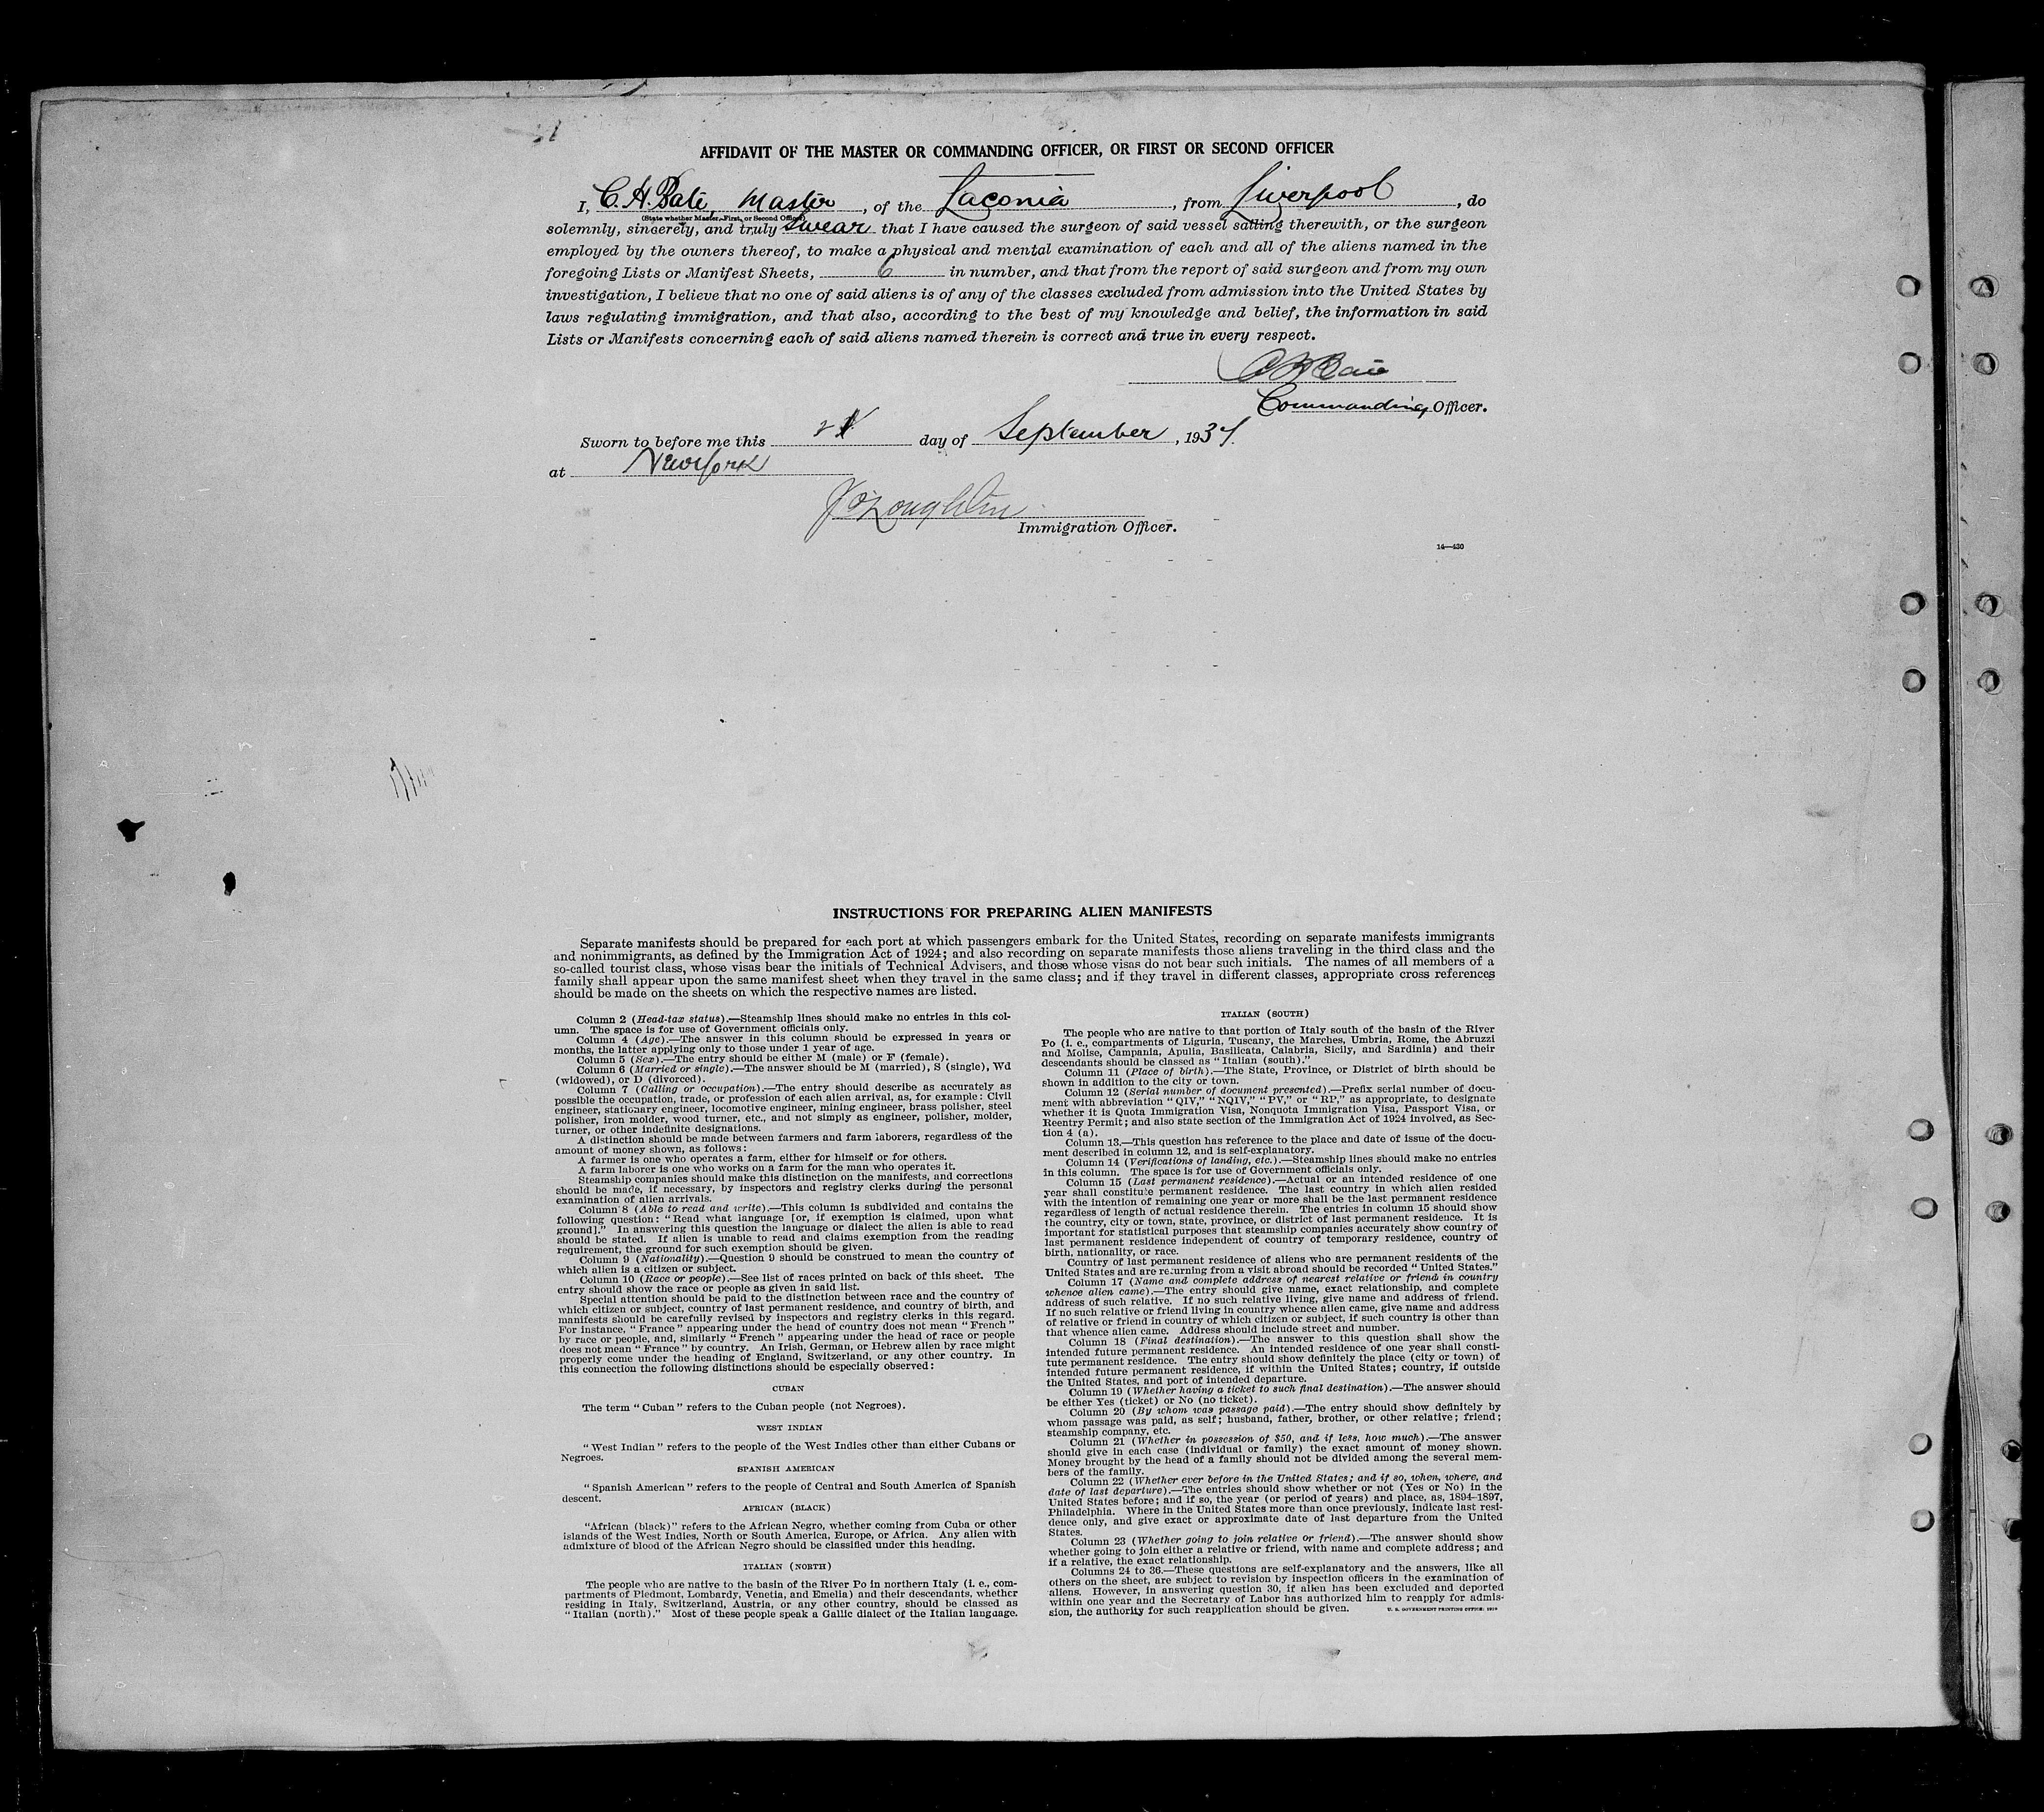 AFFIDAVIT OF THE MASTER OR COMMANDING OFFICER, OR FIRST OR SECOND OFFICER
I, C. H. Bate, Master, of the Laconia, from Liverpool, do
(State whether Master, First, or Second Officer)
solemnly, sincerely, and truly swear that I have caused the surgeon of said vessel sailing therewith, or the surgeon
employed by the owners thereof, to make a physical and mental examination of each and all of the aliens named in the
foregoing Lists or Manifest Sheets, 6 in number, and that from the report of said surgeon and from my own
investigation, I believe that no one of said aliens is of any of the classes excluded from admission into the United States by
laws regulating immigration, and that also, according to the best of my knowledge and belief, the information in said
Lists or Manifests concerning each of said aliens named therein is correct and true in every respect.
Commanding Officer.
Sworn to before me this day of September, 193
at New York
J O'Loughlin
Immigration Officer.
14—430
INSTRUCTIONS FOR PREPARING ALIEN MANIFESTS
Separate manifests should be prepared for each port at which passengers embark for the United States, recording on separate manifests immigrants
and nonimmigrants, as defined by the Immigration Act of 1924; and also recording on separate manifests those aliens traveling in the third class and the
so-called tourist class, whose visas bear the initials of Technical Advisers, and those whose visas do not bear such initials. The names of all members of a
family shall appear upon the same manifest sheet when they travel in the same class; and if they travel in different classes, appropriate cross references
should be made on the sheets on which the respective names are listed.
Column 2 (Head-tax status).—Steamship lines should make no entries in this col-
umn. The space is for use of Government officials only.
Column 4 (Age).—The answer in this column should be expressed in years or
months, the latter applying only to those under 1 year of age.
Column 5 (Sex).—The entry should be either M (male) or F (female).
Column 6 (Married or single).—The answer should be M (married), S (single), Wd
(widowed), or D (divorced).
Column 7 (Calling or occupation).—The entry should describe as accurately as
possible the occupation, trade, or profession of each alien arrival, as, for example: Civil
engineer, stationary engineer, locomotive engineer, mining engineer, brass polisher, steel
polisher, iron molder, wood turner, etc., and not simply as engineer, polisher, molder,
turner, or other indefinite designations.
A distinction should be made between farmers and farm laborers, regardless of the
amount of money shown, as follows:
A farmer is one who operates a farm, either for himself or for others.
A farm laborer is one who works on a farm for the man who operates it.
Steamship companies should make this distinction on the manifests, and corrections
should be made, if necessary, by inspectors and registry clerks during the personal
examination of alien arrivals.
Column 8 (Able to read and write).—This column is subdivided and contains the
following question: "Read what language [or, if exemption is claimed, upon what
ground]." In answering this question the language or dialect the alien is able to read
should be stated. If alien is unable to read and claims exemption from the reading
requirement, the ground for such exemption should be given.
Column 9 (Nationality).—Question 9 should be construed to mean the country of
which alien is a citizen or subject.
Column 10 (Race or people).—See list of races printed on back of this sheet. The
entry should show the race or people as given in said list.
Special attention should be paid to the distinction between race and the country of
which citizen or subject, country of last permanent residence, and country of birth, and
manifests should be carefully revised by inspectors and registry clerks in this regard.
For instance, "France" appearing under the head of country does not mean "French"
by race or people, and, similarly "French" appearing under the head of race or people
does not mean "France" by country. An Irish, German, or Hebrew alien by race might
properly come under the heading of England, Switzerland, or any other country. In
this connection the following distinctions should be especially observed:
CUBAN
The term "Cuban" refers to the Cuban people (not Negroes).
WEST INDIAN
"West Indian" refers to the people of the West Indies other than either Cubans or
Negroes.
SPANISH AMERICAN
"Spanish American" refers to the people of Central and South America of Spanish
descent.
AFRICAN (BLACK)
"African (black)" refers to the African Negro, whether coming from Cuba or other
islands of the West Indies, North or South America, Europe, or Africa. Any alien with
admixture of blood of the African Negro should be classified under this heading.
ITALIAN (NORTH)
The people who are native to the basin of the River Po in northern Italy (i. e., com-
partments of Piedmont, Lombardy, Venetia, and Emelia) and their descendants, whether
residing in Italy, Switzerland, Austria, or any other country, should be classed as
"Italian (north)." Most of these people speak a Gallic dialect of the Italian language.
ITALIAN (SOUTH)
The people who are native to that portion of Italy south of the basin of the River
Po (i. e., compartments of Liguria, Tuscany, the Marches, Umbria, Rome, the Abruzzi
and Molise, Campania, Apulia, Basilicata, Calabria, Sicily, and Sardinia) and their
descendants should be classed as "Italian (south)."
Column 11 (Place of birth).—The State, Province, or District of birth should be
shown in addition to the city or town.
Column 12 (Serial number of document presented).—Prefix serial number of docu-
ment with abbreviation "QIV," "NQIV," "PV," or "RP," as appropriate, to designate
whether it is Quota Immigration Visa, Nonquota Immigration Visa, Passport Visa, or
Reentry Permit; and also state section of the Immigration Act of 1924 involved, as Sec-
tion 4 (a).
Column 13.—This question has reference to the place and date of issue of the docu-
ment described in column 12, and is self-explanatory.
Column 14 (Verifications of landing, etc.).—Steamship lines should make no entries
in this column. The space is for use of Government officials only.
Column 15 (Last permanent residence).—Actual or an intended residence of one
year shall constitute permanent residence. The last country in which alien resided
with the intention of remaining one year or more shall be the last permanent residence
regardless of length of actual residence therein. The entries in column 15 should show
the country, city or town, state, province, or district of last permanent residence. It is
important for statistical purposes that steamship companies accurately show country of
last permanent residence independent of country of temporary residence, country of
birth, nationality, or race.
Country of last permanent residence of aliens who are permanent residents of the
United States and are returning from a visit abroad should be recorded "United States."
Column 17 (Name and complete address of nearest relative or friend in country
whence alien came).—The entry should give name, exact relationship, and complete
address of such relative. If no such relative living, give name and address of friend.
If no such relative or friend living in country whence alien came, give name and address
of relative or friend in country of which citizen or subject, if such country is other than
that whence alien came. Address should include street and number.
Column 18 (Final destination).—The answer to this question shall show the
intended future permanent residence. An intended residence of one year shall consti-
tute permanent residence. The entry should show definitely the place (city or town) of
intended future permanent residence, if within the United States; country, if outside
the United States, and port of intended departure.
Column 19 (Whether having a ticket to such final destination).—The answer should
be either Yes (ticket) or No (no ticket).
Column 20 (By whom was passage paid).—The entry should show definitely by
whom passage was paid, as self; husband, father, brother, or other relative; friend;
steamship company, etc.
Column 21 (Whether in possession of $50, and if less, how much).—The answer
should give in each case (individual or family) the exact amount of money shown.
Money brought by the head of a family should not be divided among the several mem-
bers of the family.
Column 22 (Whether ever before in the United States; and if so, when, where, and
date of last departure).—The entries should show whether or not (Yes or No) in the
United States before; and if so, the year (or period of years) and place, as, 1894–1897,
Philadelphia. Where in the United States more than once previously, indicate last resi-
dence only, and give exact or approximate date of last departure from the United
States.
Column 23 (Whether going to join relative or friend).—The answer should show
whether going to join either a relative or friend, with name and complete address; and
if a relative, the exact relationship.
Columns 24 to 36.—These questions are self-explanatory and the answers, like all
others on the sheet, are subject to revision by inspection officers in the examination of
aliens. However, in answering question 30, if alien has been excluded and deported
within one year and the Secretary of Labor has authorized him to reapply for admis-
sion, the authority for such reapplication should be given.
U. S. GOVERNMENT PRINTING OFFICE: